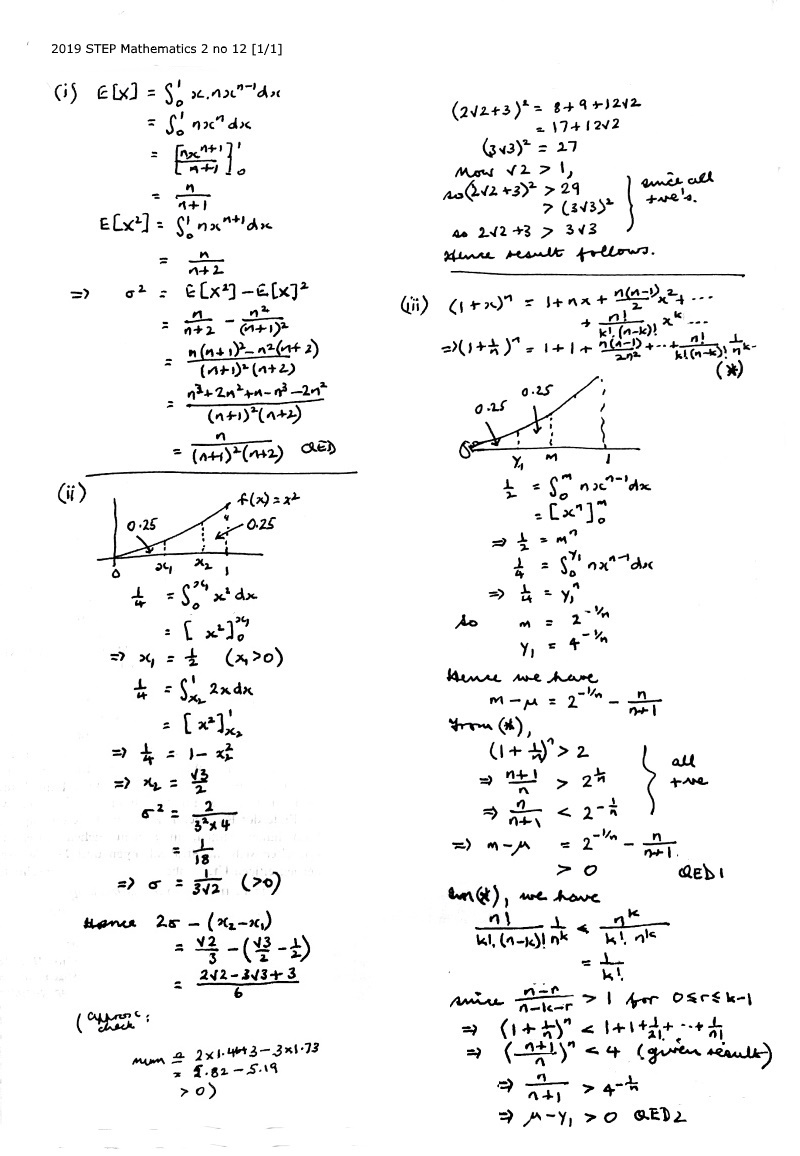 2019 STEP Mathematics 2 no 12 [1/1]
(i) E[X] = ∫₀¹ x.nxⁿ⁻¹dx
= ∫₀¹ nxⁿdx
= [nxⁿ⁺¹/(n+1)]₀¹
= n/(n+1)
E[X²] = ∫₀¹ nxⁿ⁺¹dx
= n/(n+2)
⇒ σ² = E[X²] − E[X]²
= n/(n+2) − n²/(n+1)²
= (n(n+1)² − n²(n+2))/((n+1)²(n+2))
= (n³+2n²+n−n³−2n²)/((n+1)²(n+2))
= n/((n+1)²(n+2)) QED
(ii)
f(x)=x²
0.25
0.25
0 x₁ x₂ 1
1/4 = ∫₀^x₁ x² dx
= [x²]₀^x₁
⇒ x₁ = 1/2 (x₁>0)
1/4 = ∫_x₂^1 2x dx
= [x²]_x₂^1
⇒ 1/4 = 1 − x₂²
⇒ x₂ = √3/2
σ² = 2/(3²×4)
= 1/18
⇒ σ = 1/(3√2) (>0)
Hence 2σ − (x₂−x₁)
= √2/3 − (√3/2 − 1/2)
= (2√2 − 3√3 + 3)/6
(approx check:
num ≏ 2×1.41+3−3×1.73
= 5.82−5.19
>0)
(2√2+3)² = 8+9+12√2
= 17+12√2
(3√3)² = 27
Now √2 > 1,
so (2√2+3)² > 29
> (3√3)²
since all
+ve's.
so 2√2+3 > 3√3
Hence result follows.
(iii) (1+x)ⁿ = 1+nx+ (n(n−1)/2)x²+ ···
+ (n!/(k!(n−k)!)) xᵏ ···
⇒(1+1/n)ⁿ = 1+1+ n(n−1)/2n² + ·· + (n!/(k!(n−k)!)) 1/nᵏ ··
(*)
0.25
0.25
0 Y₁ M 1
1/2 = ∫₀ᵐ nxⁿ⁻¹dx
= [xⁿ]₀ᵐ
⇒ 1/2 = mⁿ
1/4 = ∫₀^Y₁ nxⁿ⁻¹dx
⇒ 1/4 = Y₁ⁿ
so m = 2^(−1/n)
Y₁ = 4^(−1/n)
Hence we have
m−μ = 2^(−1/n) − n/(n+1)
From (*),
(1+1/n)ⁿ > 2
⇒ (n+1)/n > 2^(1/n)
⇒ n/(n+1) < 2^(−1/n)
all
+ve
⇒ m−μ = 2^(−1/n) − n/(n+1)
> 0 QED1
In (*), we have
(n!/(k!(n−k)!)) 1/nᵏ < nᵏ/(k! nᵏ)
= 1/k!
since (n−r)/(n−k−r) > 1 for 0≤r≤k−1
⇒ (1+1/n)ⁿ < 1+1+1/2!+ ··+1/n!
⇒ ((n+1)/n)ⁿ < 4 (given result)
⇒ n/(n+1) > 4^(−1/n)
⇒ μ−Y₁ > 0 QED2